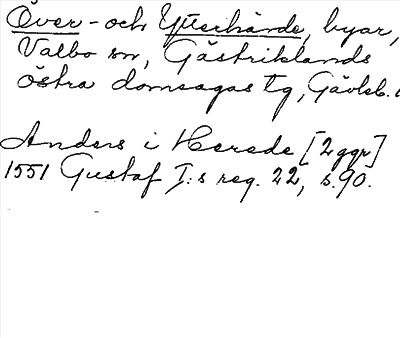 Över- och Ytterhärde, byar,
Valbo sn, Gästriklands
östra domsagas tg, Gävleb.
Anders i Herede [2 ggr]
1551 Gustaf I:s reg. 22, s. 90.